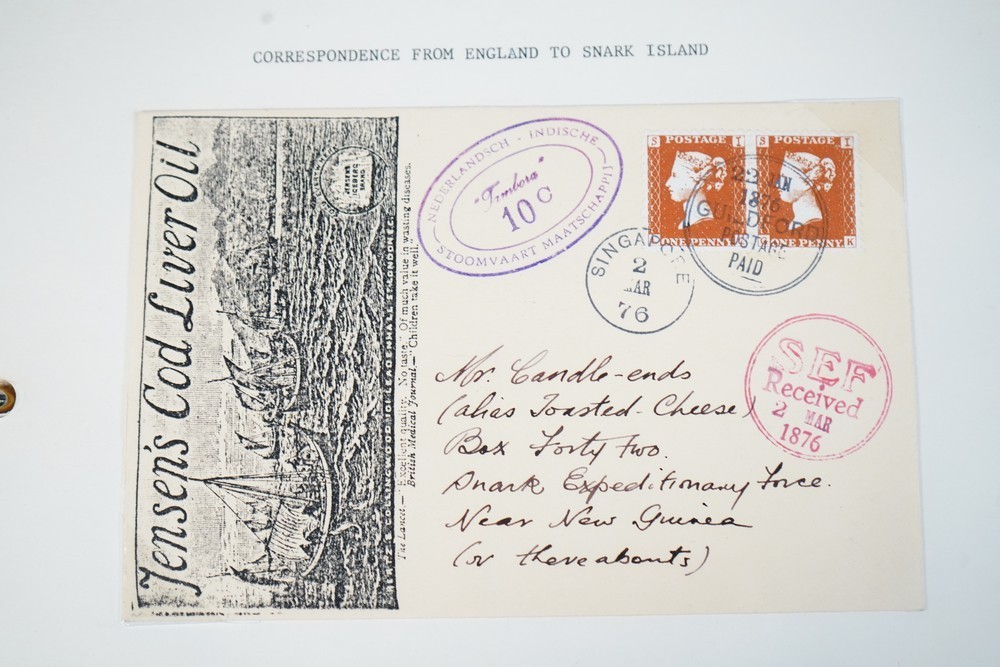 CORRESPONDENCE FROM ENGLAND TO SNARK ISLAND
Jensen's Cod Liver Oil
JENSEN'S
ICEBERG
BRAND
The Lancet.—"Excellent quality. No taste." Of much value in wasting diseases.
British Medical Journal.—"Children take it well."
NEDERLANDSCH - INDISCHE
"Tambora"
10 C
STOOMVAART MAATSCHAPPIJ
S POSTAGE I
ONE PENNY
S POSTAGE I
ONE PENNY K
22 JAN
1876
GUILDFORD
POSTAGE
PAID
SINGAPORE
2
MAR
76
SEF
Received
2 MAR
1876
Mr. Candle-ends
(alias Toasted-Cheese)
Box Forty Two.
Snark Expeditionary Force.
Near New Guinea
(or thereabouts)